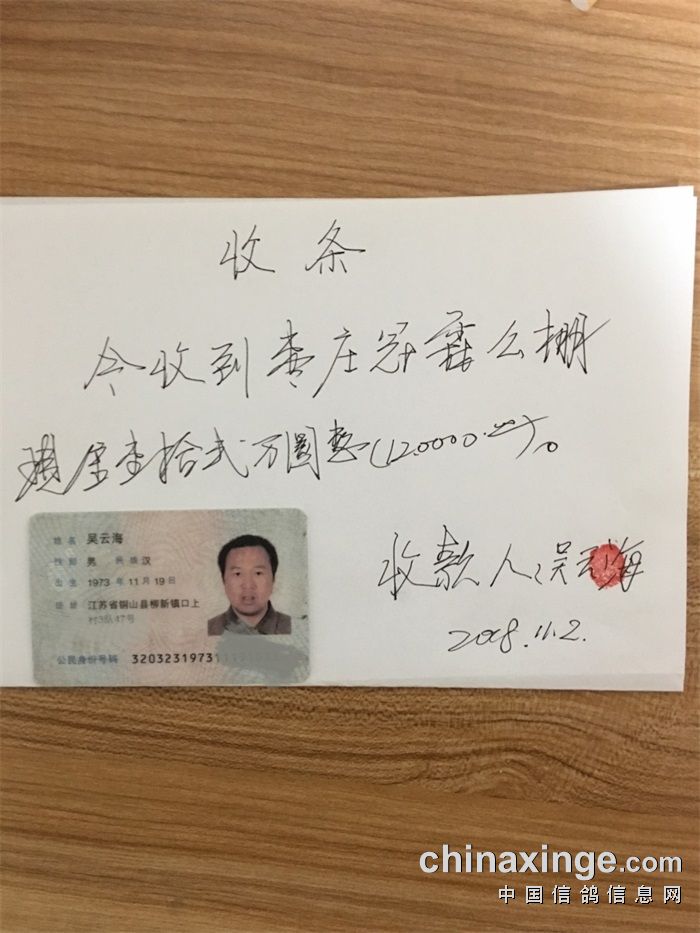 收条
今收到枣庄冠霖公棚
现金壹拾弍万圆整(120000.00)。
姓名 吴云海
性别 男 民族 汉
出生 1973 年 11 月 19 日
住址 江苏省铜山县柳新镇口上
村3队47号
公民身份号码 3203231973
收款人:吴云海
2018.11.2.
chinaxinge.com
中国信鸽信息网